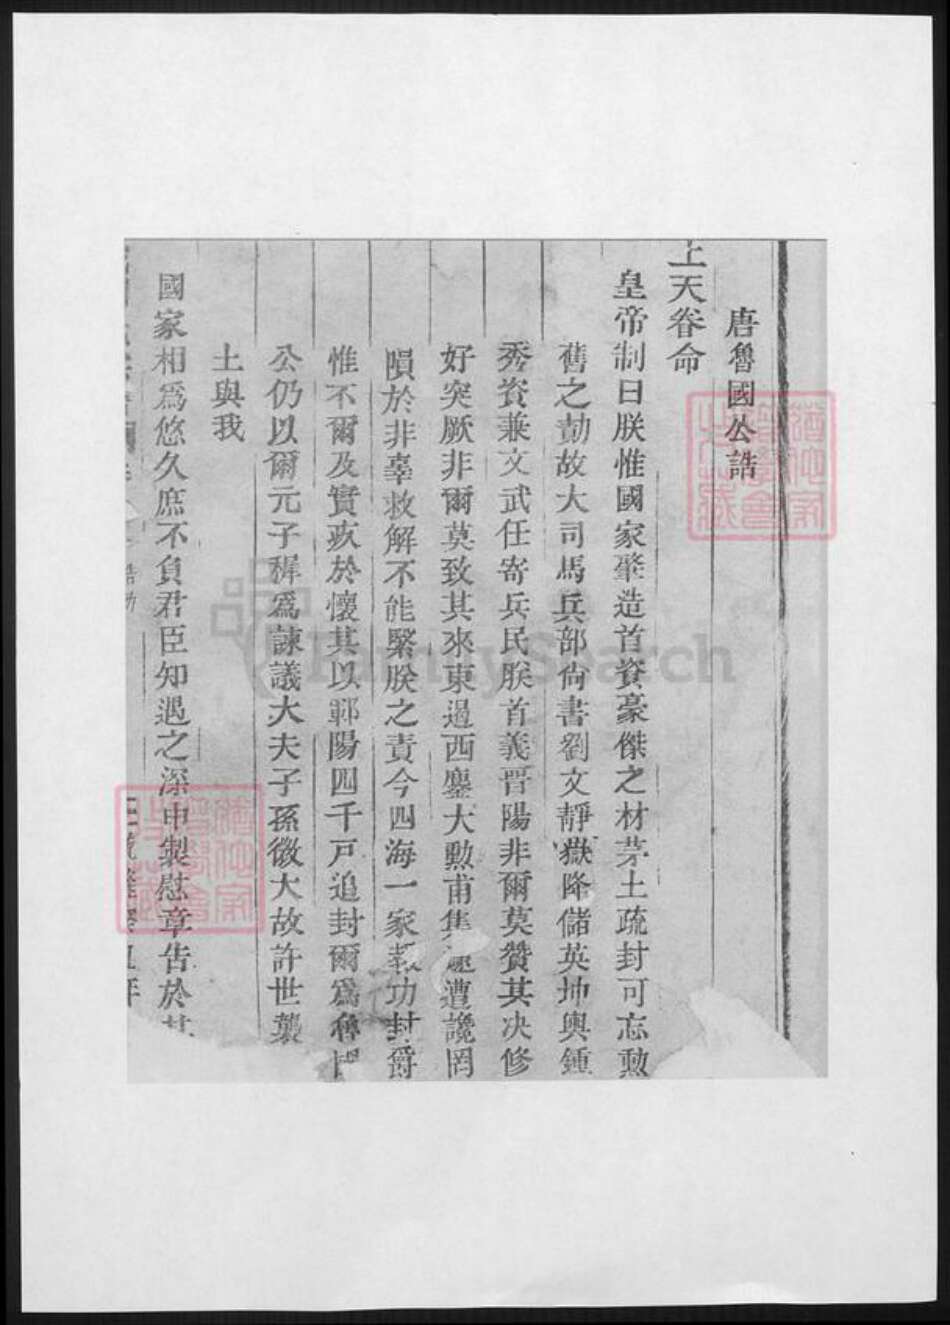 唐魯國公誥
上天眷命
皇帝制曰朕惟國家肇造首資豪傑之材茅土疏封可忘勲
舊之勣故大司馬兵部尙書劉文靜嶽降儲英坤輿鍾
秀資兼文武任寄兵民朕首義晋陽非爾莫贊其决修
好突厥非爾莫致其來東過西鏖大勲甫集遭讒罔
隕於非辜救解不能緊朕之責今四海一家報功封爵
惟不爾及實疚於懷其以鄆陽四千戸追封爾爲魯國
公仍以爾元子穉爲諫議大夫子孫微大故許世襲
土與我
國家相爲悠久庶不負君臣知遇之深申製慰章告於其